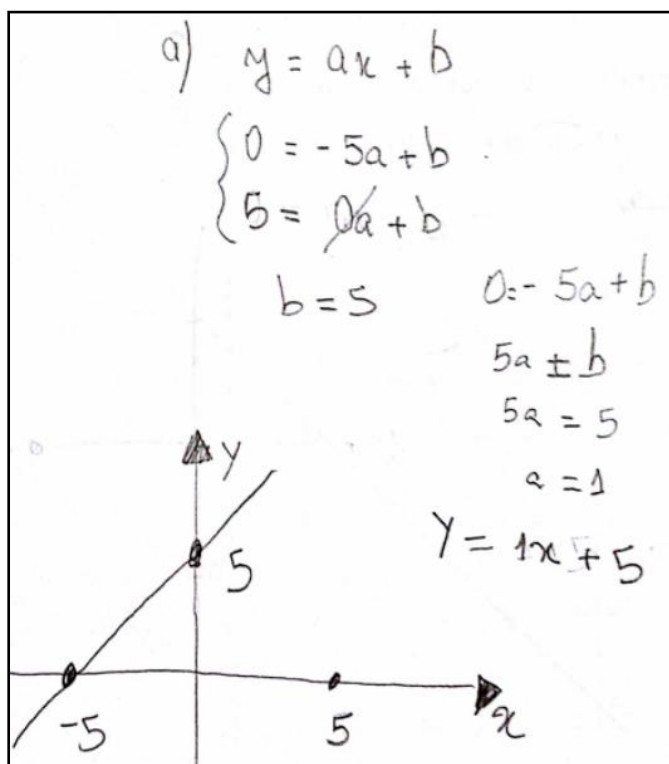 a) y = ax + b
0 = -5a + b
5 = 0a + b
b = 5
0 = - 5a + b
5a = b
5a = 5
a = 1
Y = 1x + 5
y
5
-5
5
x